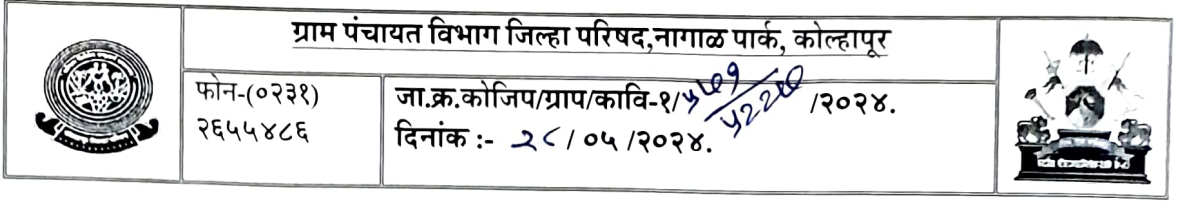 ग्राम पंचायत विभाग जिल्हा परिषद,नागाळ पार्क, कोल्हापूर
फोन-(०२३१)
२६५५४८६
जा.क्र.कोजिप/ग्राप/कावि-१/ /२०२४.
दिनांक :- २८/०५/२०२४.